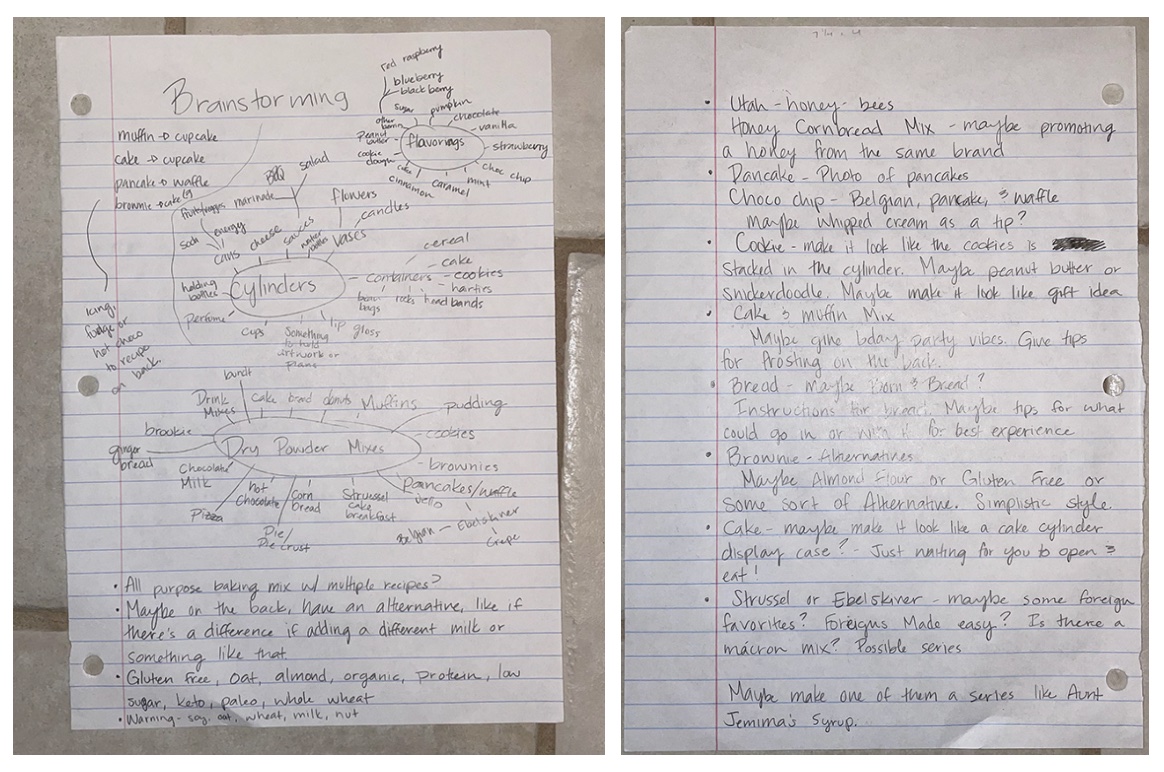 Brainstorming
muffin → cupcake
cake → cupcake
pancake → waffle
brownie → cake
icing,
fudge or
hot choco
to recipe
on back.
red raspberry
blueberry
black berry
sugar
pumpkin
chocolate
vanilla
strawberry
choc chip
mint
caramel
cinnamon
cake
cookie
dough
Peanut
butter
other
flavorings
salad
BBQ
marinade
sauces
flowers
candles
vases
water
bottles
cheese
energy
soda
cans
holding
bottles
perfume
cups
Something
to hold
artwork or
plans
lip gloss
Cylinders
containers
cereal
cake
cookies
head bands
rocks
bundt
Drink
Mixes
cake
bread
donuts
Muffins
pudding
cookies
brownies
Pancakes/waffle
Jello
Ebelskiver
Crepe
Belgian
Strussel
cake
breakfast
corn
bread
Pie/
Pie crust
hot
chocolate
Pizza
Chocolate
Milk
ginger
bread
brookie
Dry Powder Mixes
• All purpose baking mix w/ multiple recipes?
• Maybe on the back, have an alternative, like if
there's a difference if adding a different milk or
something like that
• Gluten Free, oat, almond, organic, protein, low
sugar, keto, paleo, whole wheat
• Warning - soy, oat, wheat, milk, nut
• Utah - honey - bees
Honey Cornbread Mix - maybe promoting
a honey from the same brand
• Pancake - Photo of pancakes
Choco chip - Belgian, pancake, & waffle
maybe whipped cream as a tip?
• Cookie - make it look like the cookies is
stacked in the cylinder. Maybe peanut butter or
snickerdoodle. Maybe make it look like gift idea
• Cake & muffin Mix
Maybe give bday party vibes. Give tips
for frosting on the back.
• Bread - maybe Born & Bread?
Instructions for bread. Maybe tips for what
could go in or with it for best experience
• Brownie - Alternatives
Maybe Almond Flour or Gluten Free or
some sort of Alternative. Simplistic style
• Cake - maybe make it look like a cake cylinder
display case? - Just waiting for you to open &
eat!
• Strussel or Ebelskiver - maybe some foreign
favorites? Foreigns Made easy? Is there a
mácron mix? Possible series
Maybe make one of them a series like Aunt
Jemima's Syrup.